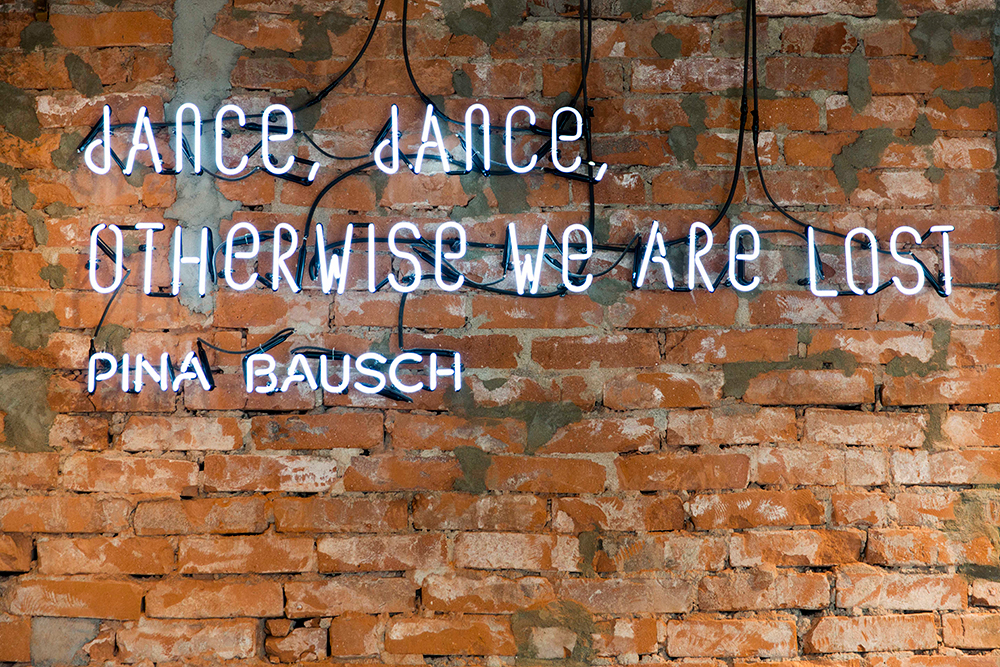 dANce, dANce,
OTHerWISe We Are LOST
PINA BAUSCH